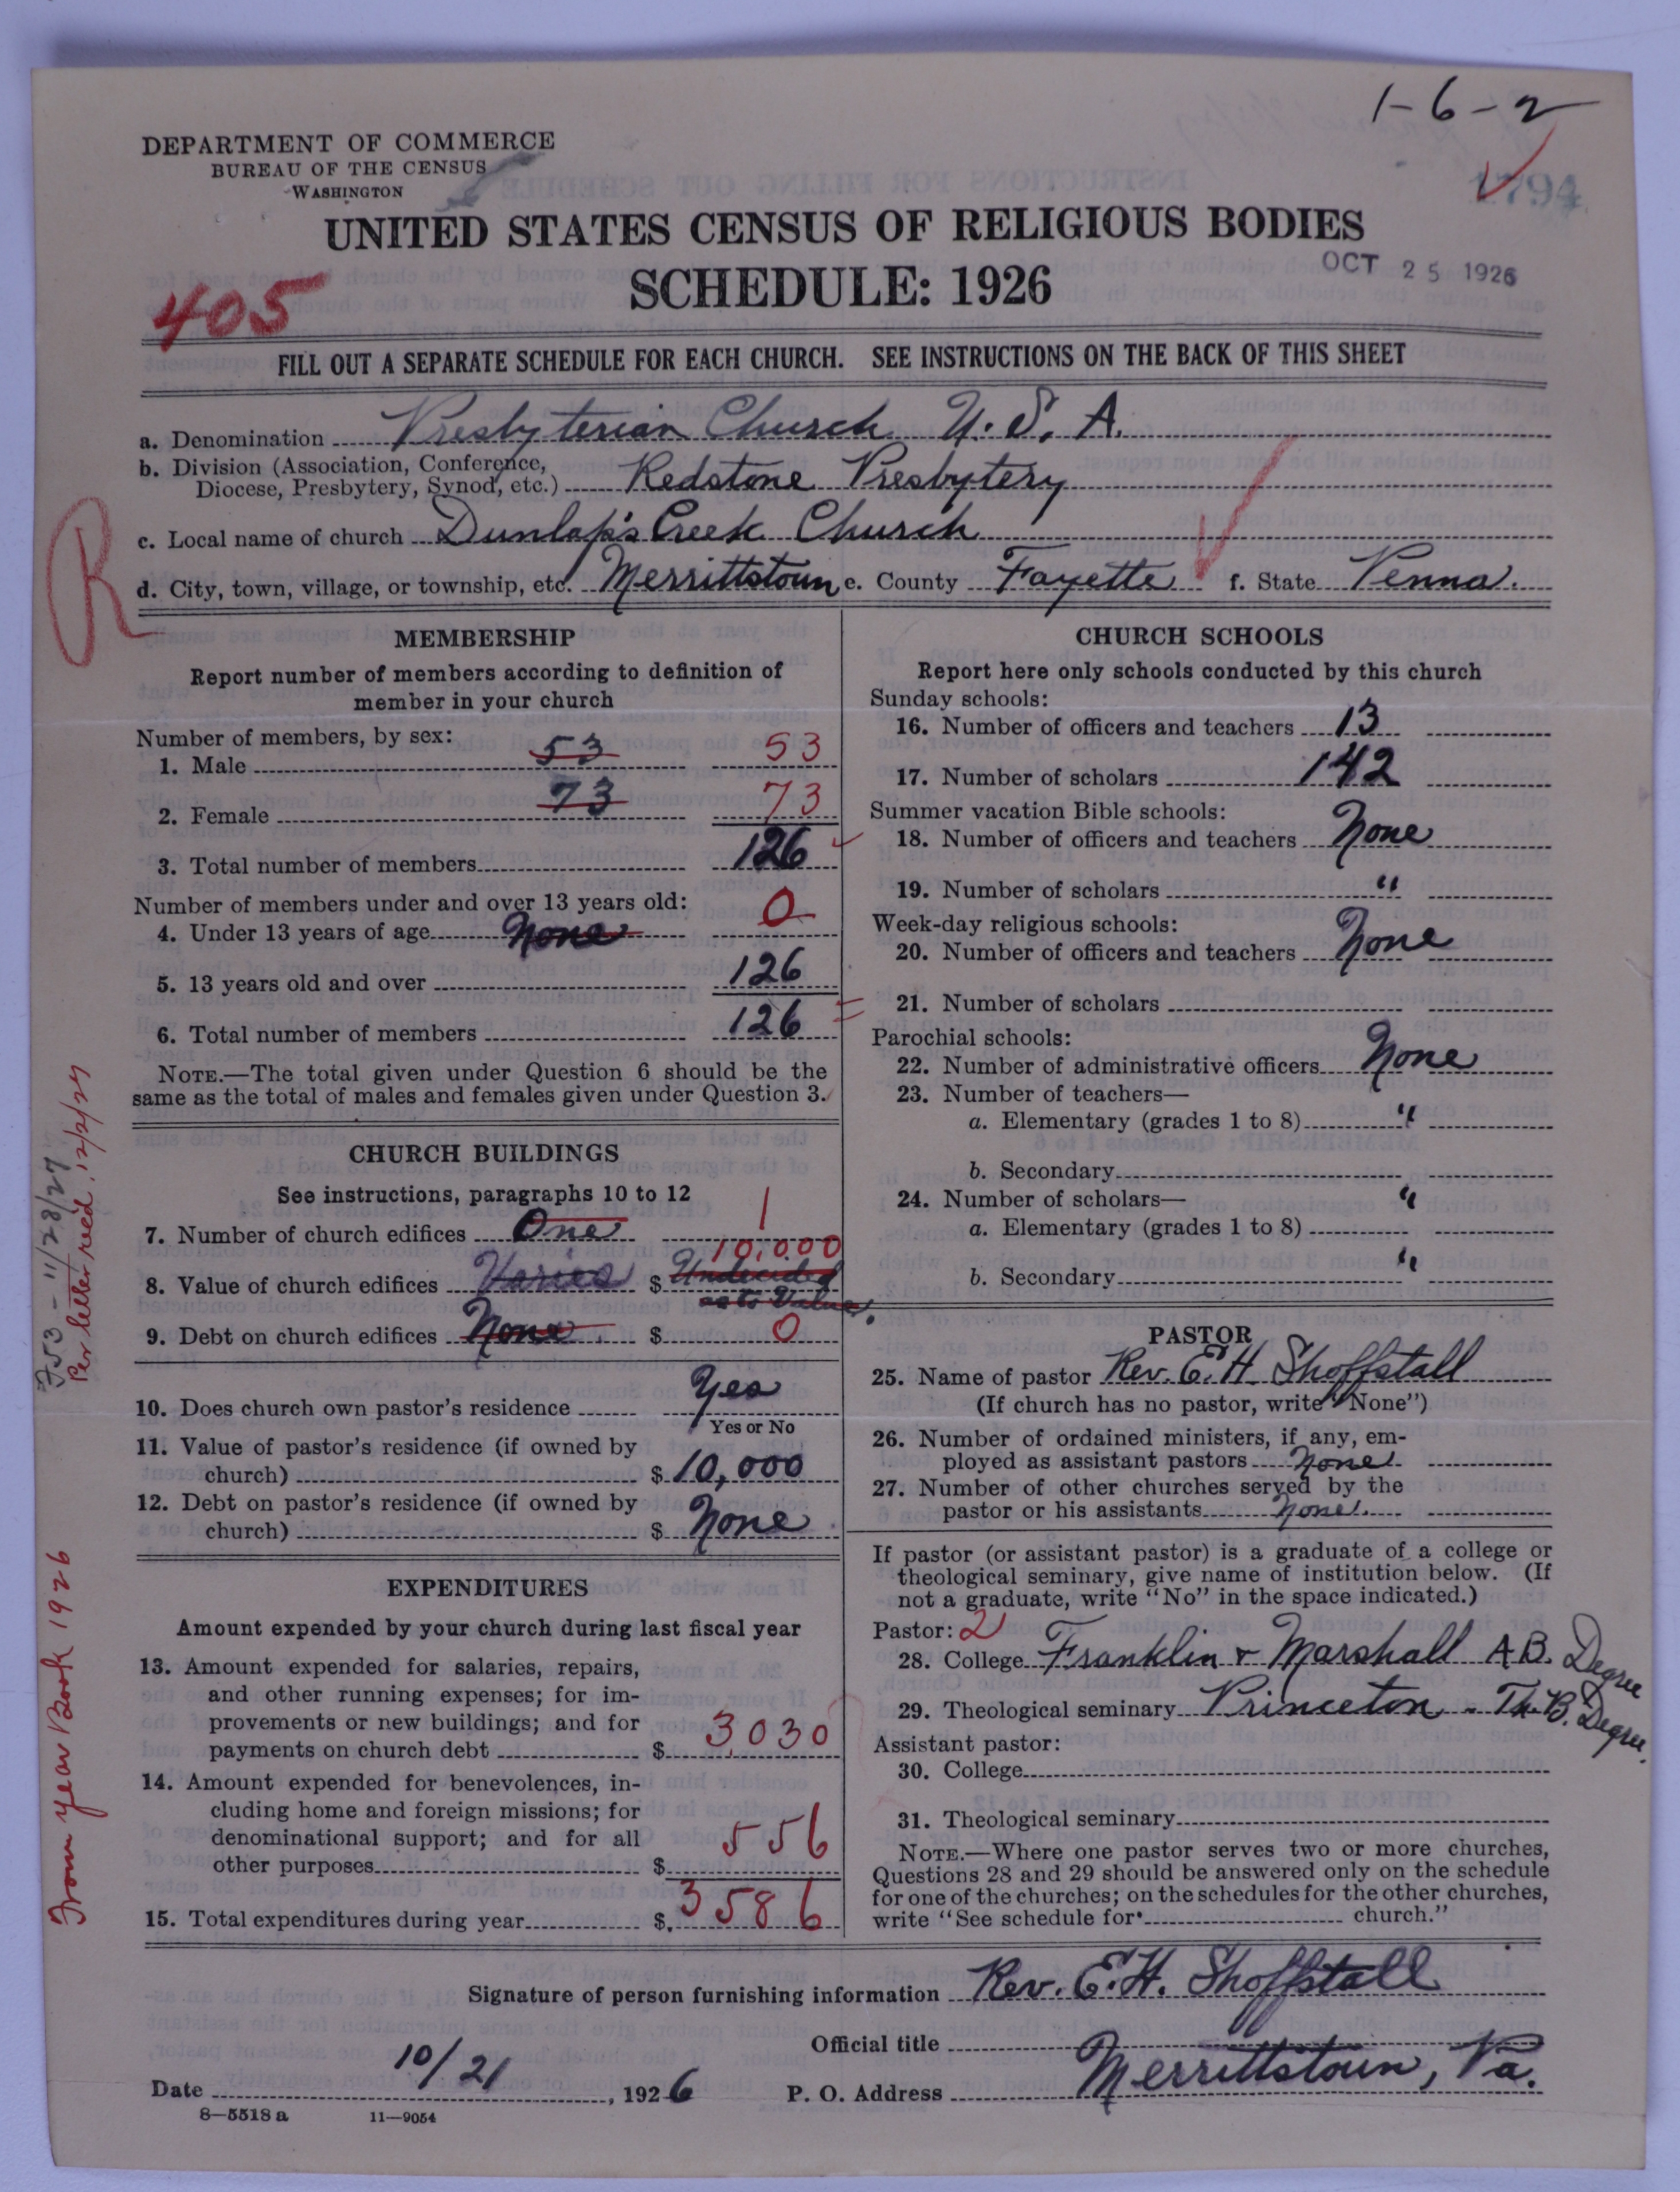 1-6-2
DEPARTMENT OF COMMERCE
BUREAU OF THE CENSUS
WASHINGTON
1794
UNITED STATES CENSUS OF RELIGIOUS BODIES
SCHEDULE: 1926
OCT 25 1926
405
FILL OUT A SEPARATE SCHEDULE FOR EACH CHURCH. SEE INSTRUCTIONS ON THE BACK OF THIS SHEET
a. Denomination Presbyterian Church U.S.A.
b. Division (Association, Conference,
Diocese, Presbytery, Synod, etc.) Redstone Presbytery
R
c. Local name of church Dunlap's Creek Church
d. City, town, village, or township, etc. Merrittstown e. County Fayette f. State Penna.
MEMBERSHIP
Report number of members according to definition of
member in your church
Number of members, by sex:
1. Male 53 53
2. Female 73 73
3. Total number of members 126
Number of members under and over 13 years old:
4. Under 13 years of age None 0
5. 13 years old and over 126
6. Total number of members 126
NOTE.—The total given under Question 6 should be the
same as the total of males and females given under Question 3.
CHURCH BUILDINGS
See instructions, paragraphs 10 to 12
7. Number of church edifices One 1
10,000
8. Value of church edifices Varies $ Undecided
as to Value.
9. Debt on church edifices None $ 0
10. Does church own pastor's residence Yes
Yes or No
11. Value of pastor's residence (if owned by
church) $ 10,000
12. Debt on pastor's residence (if owned by
church) $ None
EXPENDITURES
Amount expended by your church during last fiscal year
13. Amount expended for salaries, repairs,
and other running expenses; for im-
provements or new buildings; and for
payments on church debt $ 3030
14. Amount expended for benevolences, in-
cluding home and foreign missions; for
denominational support; and for all
other purposes $ 556
15. Total expenditures during year $ 3586
CHURCH SCHOOLS
Report here only schools conducted by this church
Sunday schools:
16. Number of officers and teachers 13
17. Number of scholars 142
Summer vacation Bible schools:
18. Number of officers and teachers None
19. Number of scholars "
Week-day religious schools:
20. Number of officers and teachers None
21. Number of scholars
Parochial schools:
22. Number of administrative officers None
23. Number of teachers—
a. Elementary (grades 1 to 8) "
b. Secondary
24. Number of scholars— "
a. Elementary (grades 1 to 8)
b. Secondary "
PASTOR
25. Name of pastor Rev. E. H. Shoffstall
(If church has no pastor, write "None")
26. Number of ordained ministers, if any, em-
ployed as assistant pastors None
27. Number of other churches served by the
pastor or his assistants None
If pastor (or assistant pastor) is a graduate of a college or
theological seminary, give name of institution below. (If
not a graduate, write "No" in the space indicated.)
Pastor: 2
28. College Franklin & Marshall A.B. Degree
29. Theological seminary Princeton - Th.B. Degree.
Assistant pastor:
30. College
31. Theological seminary
NOTE.—Where one pastor serves two or more churches,
Questions 28 and 29 should be answered only on the schedule
for one of the churches; on the schedules for the other churches,
write "See schedule for church."
Signature of person furnishing information Rev. E. H. Shoffstall
Official title
Date 10/21, 1926 P. O. Address Merrittstown, Pa.
8—5518 a 11—9054
F53 - 11/28/27
Per letter rec'd. 12/2/27
From year Book 1926